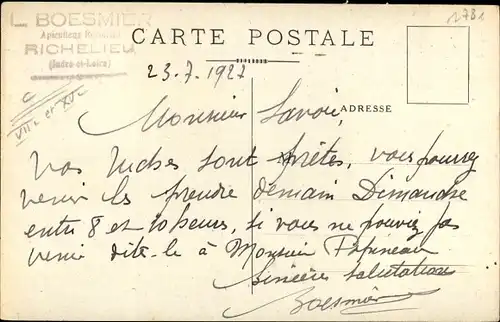 L. BOESMIER
Apiculteur
RICHELIEU
(Indre-et-Loire)
1781
CARTE POSTALE
23.7.1927
ADRESSE
VIIe et XVe
Monsieur Savoie,
Vos ruches sont prêtes, vous pouvez
venir les prendre demain Dimanche
entre 8 et 10 heures, si vous ne pouviez pas
venir dite-le à Monsieur Papineau
Sincères salutations
Boesmier